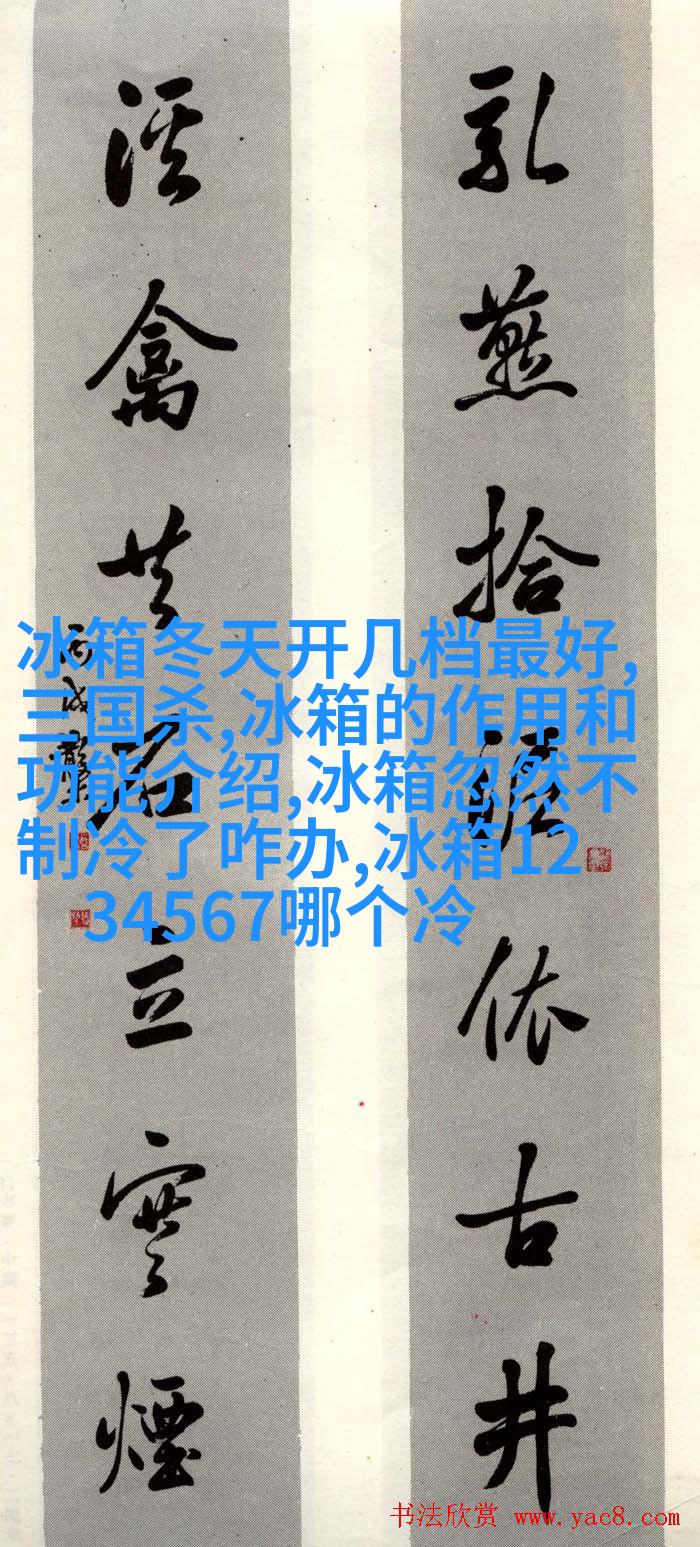 乳燕拾泥依古井
溪禽共石立寒煙
冰箱冬天开几档最好,
三国杀,冰箱的作用和
功能介绍,冰箱忽然不
制冷了咋办,冰箱12
34567哪个冷
书法欣赏 www.yac8.com